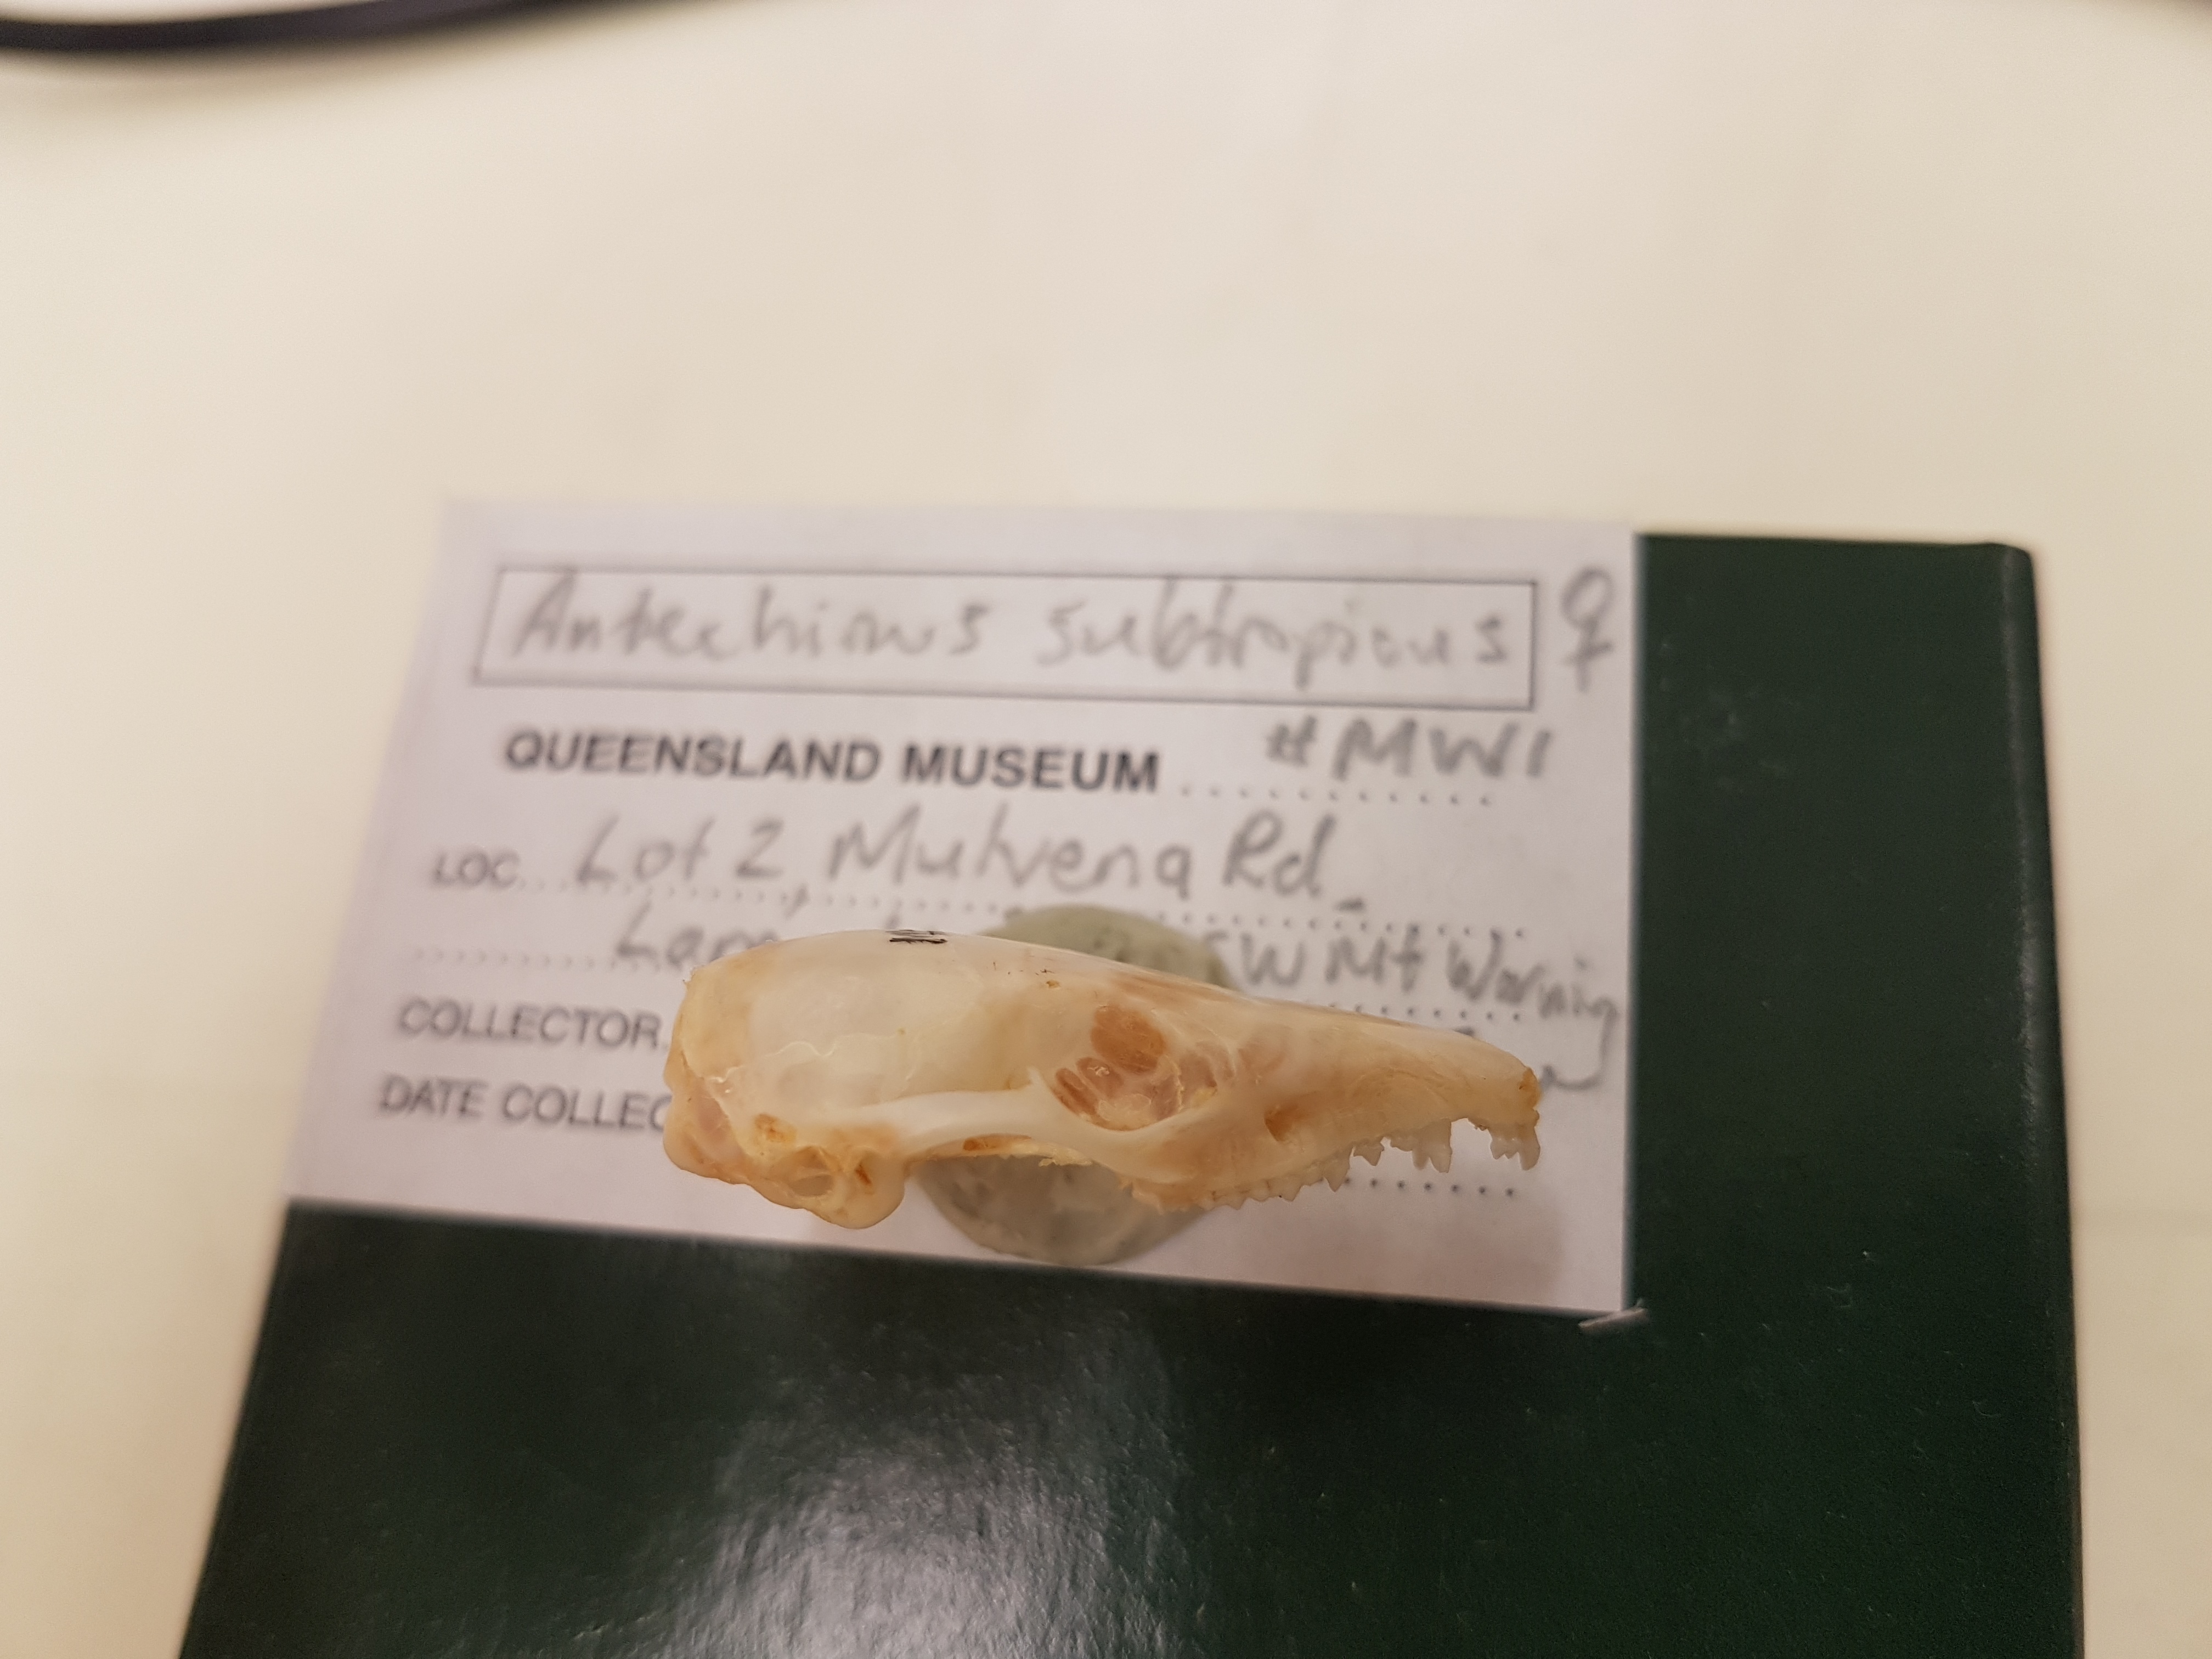 Antechinus subtropicus ♀
QUEENSLAND MUSEUM #MW1
LOC. Lot 2, Mulvena Rd,
SW Mt Warning
COLLECTOR
DATE COLLEC